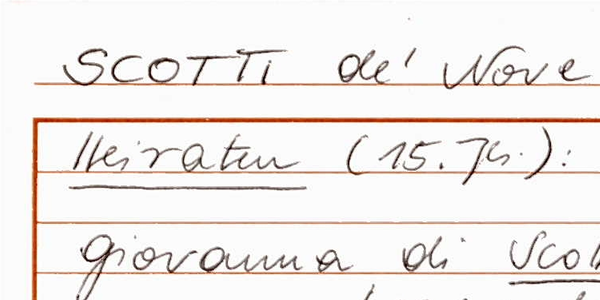 SCOTTI de' Nove
Heiraten (15. Jh.):
Giovanna di